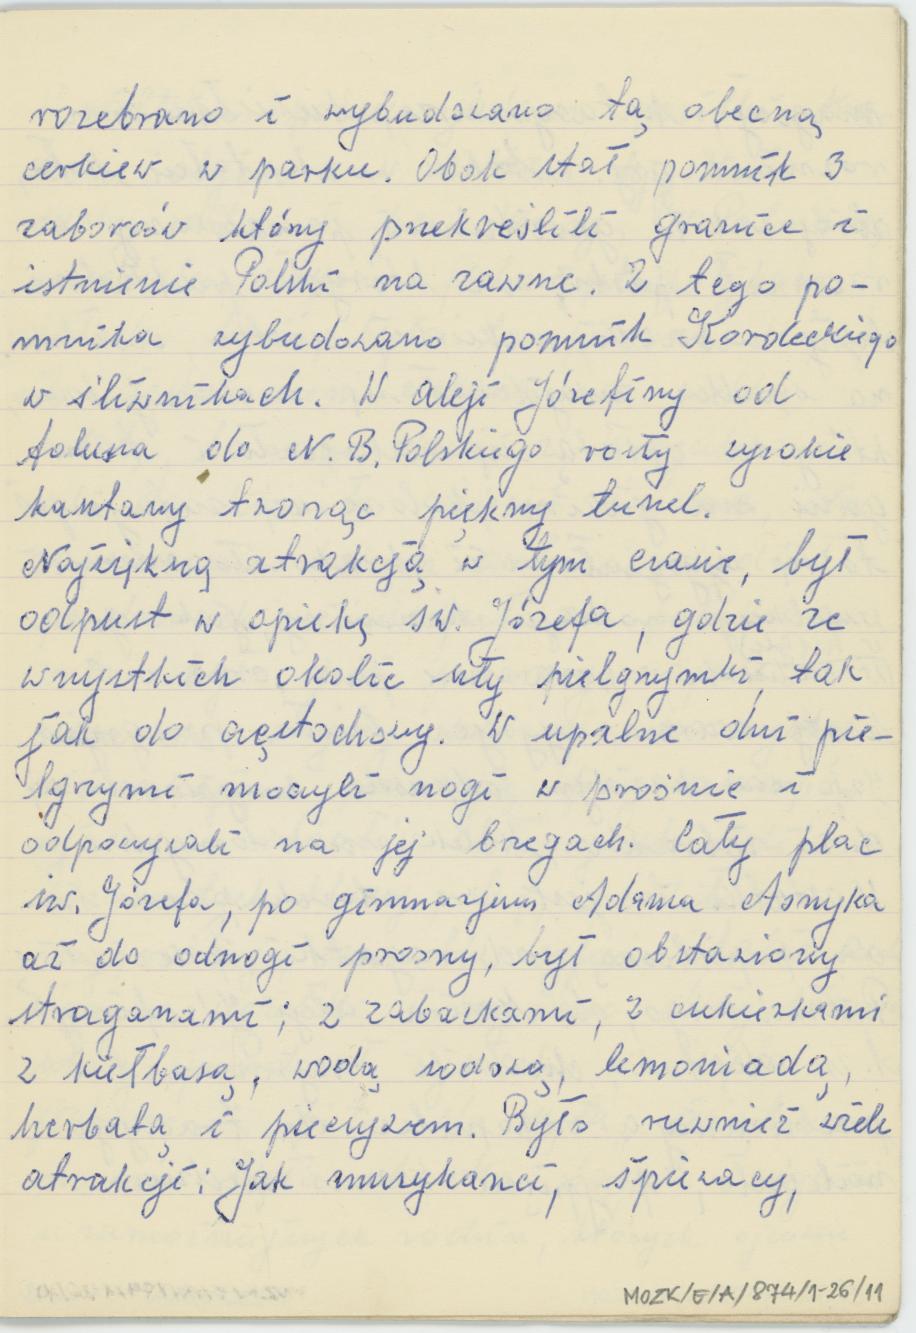 rozebrano i wybudowano tą obecną
cerkiew w parku. Obok stał pomnik 3
zaborców którzy przekreślili granice i
istnienie Polski na zawsze. Z tego po-
mnika wybudowano pomnik Kordeckiego
w śliwnikach. W aleji Józefiny od
do N. B. Polskiego rosły wysokie
kasztany tworząc piękny tunel.
Największą atrakcją w tym czasie, był
odpust w opiekę św. Józefa, gdzie ze
wszystkich okolic szły pielgrzymki, tak
jak do częstochowy. W upalne dni pie-
lgrzymi moczyli nogi w prośnie i
odpoczywali na jej brzegach. Cały plac
św. Józefa, po gimnazjum Adama Asnyka
aż do odnogi prosny, był obstawiony
straganami; z zabawkami, z cukierkami
z kiełbasą, wodą sodową, lemoniadą,
herbatą i pieczywem. Było również wiele
atrakcji: Jak muzykanci, śpiewacy,
MOZK/E/A/874/1-26/11